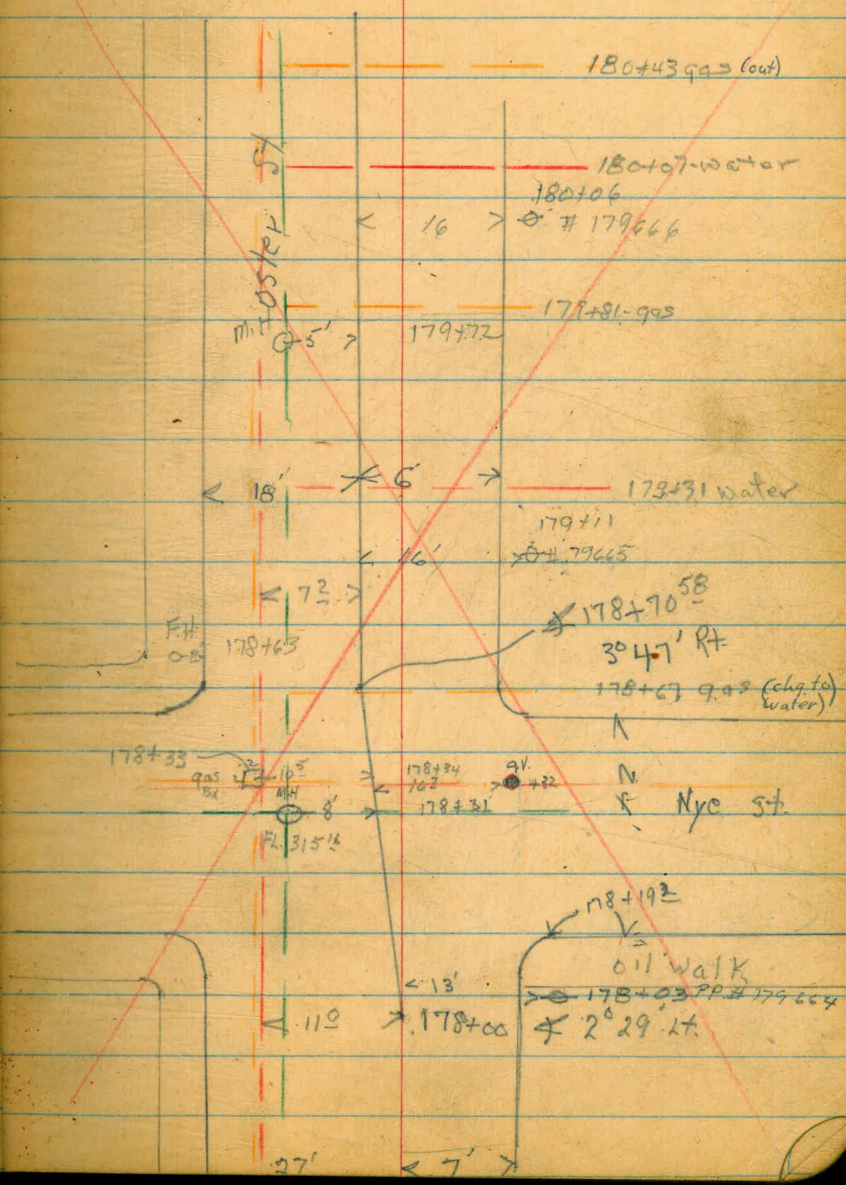 180+43 gas (out)
St
180+07-water
180+06
16 # 179666
Foster
179+81-gas
M.H 5' 179+72
6'
18' 179+31 water
179+11
16' # 79665
7²
178+70⁵⁸
F.H. 178+63
3°47' Rt.
178+67 gas (chg. to water)
178+33
gas Bx 10⁵ 178+34 g.v. +32
M.H 8' 178+31 Nye St.
FL. 315
178+19³
oil Walk
13' 178+03 P.P. # 179664
11⁰ 178+00 2°29' Lt.
27' 7'